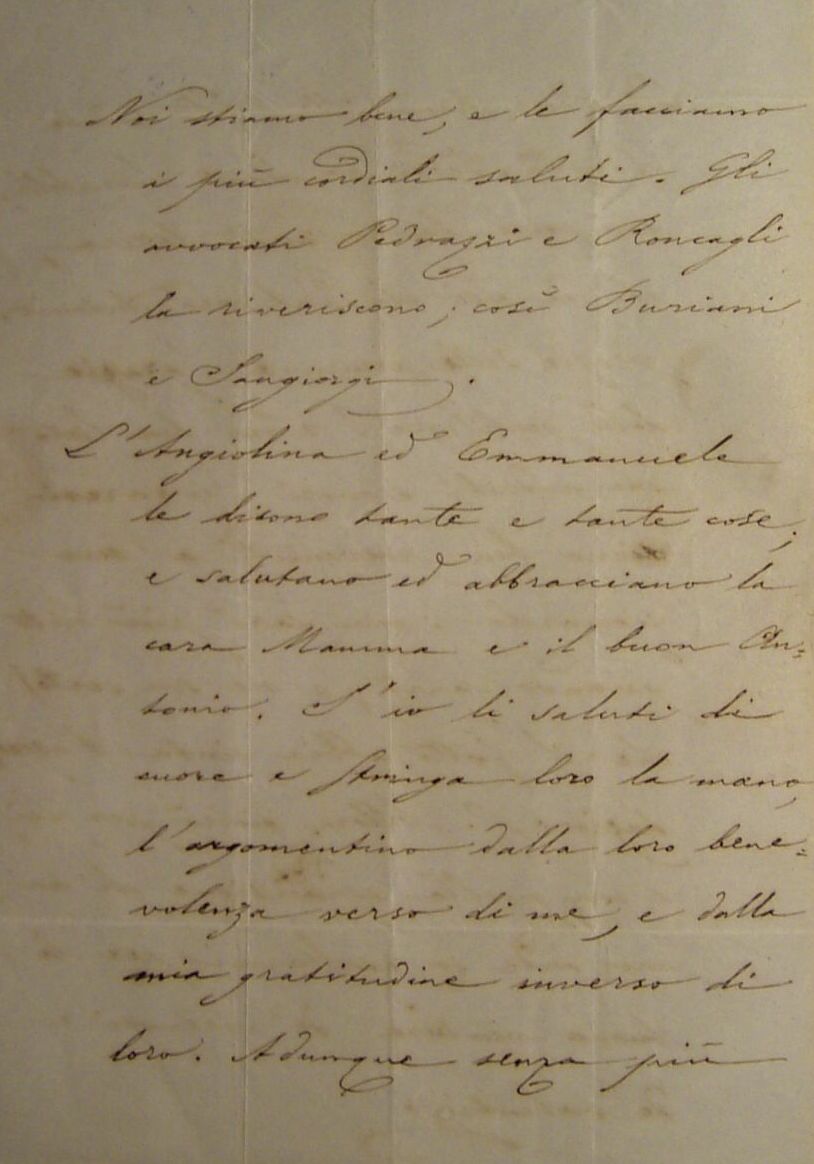 Noi stiamo bene, e le facciamo
i più cordiali saluti. Gli
avvocati Pedrazzi e Roncagli
la riveriscono; così Buriani
e Sangiorgi.
L'Angiolina ed Emmanuele
le dicono tante e tante cose;
e salutano ed abbracciano la
cara Mamma e il buon An=
tonio. S'io li saluti di
cuore e stringa loro la mano,
l'argomentino dalla loro bene=
volenza verso di me, e dalla
mia gratitudine inverso di
loro. Adunque senza più